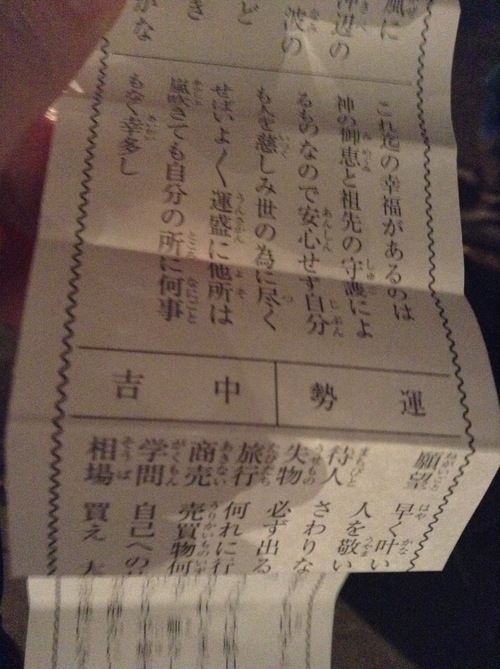 風に
辺の
波の
ど
き
がな
これ迄の幸福があるのは
神の御恵と祖先の守護によ
るものなので安心せず自分
も人を慈しみ世の為に尽く
せばいよ〱運盛に他所は
嵐吹きても自分の所に何事
もなく幸多し
運勢
中吉
願望 早く叶い
人を敬い
待人 さわりな
失物 必ず出る
旅行 何れに行
商売 売買物何
学問 自己への
相場 買え 大